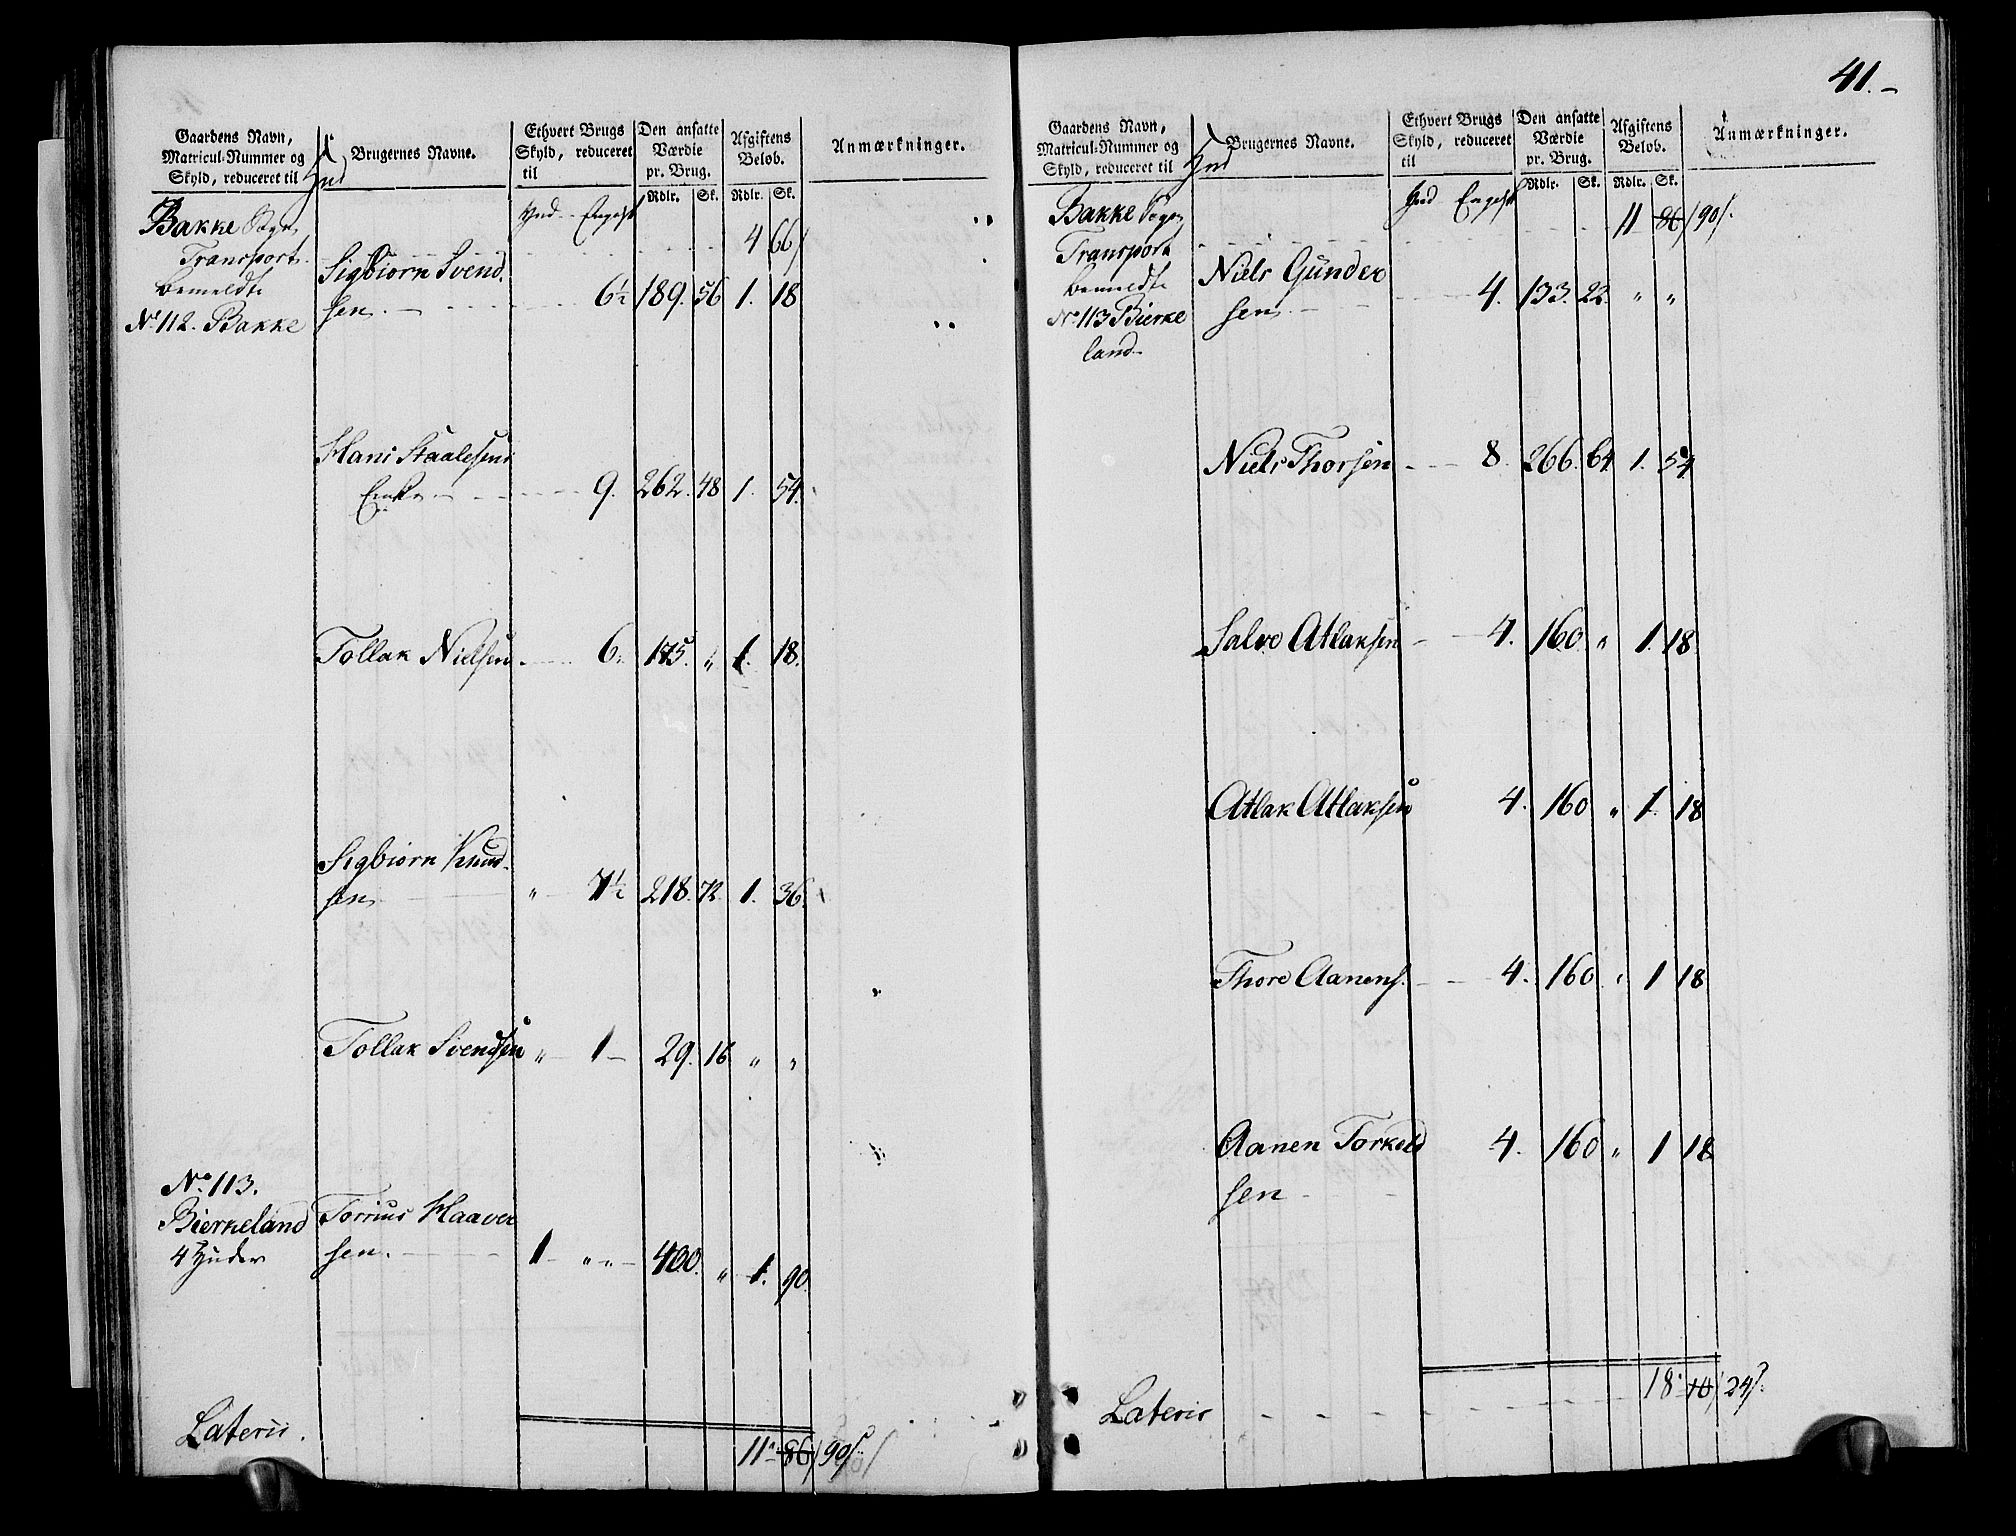 Gaardens Navn, Matricul-Nummer og Skyld, reduceret til Hud | Brugernes Navne. | Ethvert Brugs Skyld, reduceret til | Den ansatte Værdie pr. Brug. | Afgiftens Beløb. | Anmærkninger.
Hud Engelsk | Rdlr. Sk. | Rdlr. Sk.
Bakke Sogn
Transport 4 66
bemeldte
No 112. Bakke
Sigbiorn Svend-
sen. 6½ 189. 56 1. 18
Hans Staalesens
Enke 9. 262. 48 1. 54.
Tollak Nielsen. 6. 175. " 1. 18.
Sigbiorn Knud-
sen " 7½ 218. 72. 1. 36.
Tollak Svendsen " 1 29. 16 " "
No 113.
Bierkeland
4 Huder
Torrius Haaver
sen. 1 " " 400. " 1. 90.
Lateris. 11 86 90
41.
Gaardens Navn, Matricul-Nummer og Skyld, reduceret til Hud | Brugernes Navne. | Ethvert Brugs Skyld, reduceret til | Den ansatte Værdie pr. Brug. | Afgiftens Beløb. | Anmærkninger.
Hud Engelsk | Rdlr. Sk. | Rdlr. Sk.
Bakke Sogn
Transport 11 86 90
bemeldte
No 113 Bierke
land
Niels Gunder
sen. 4. 133. 22. " "
Niels Thorsen 8. 266. 64 1. 54
Salve Atlaksen 4. 160 " 1. 18
Atlak Atlaksen 4. 160 " 1. 18
Thore Aanens. 4. 160 " 1 18
Aanen Torkeld
sen 4. 160 " 1 18
Lateris 18 10 24